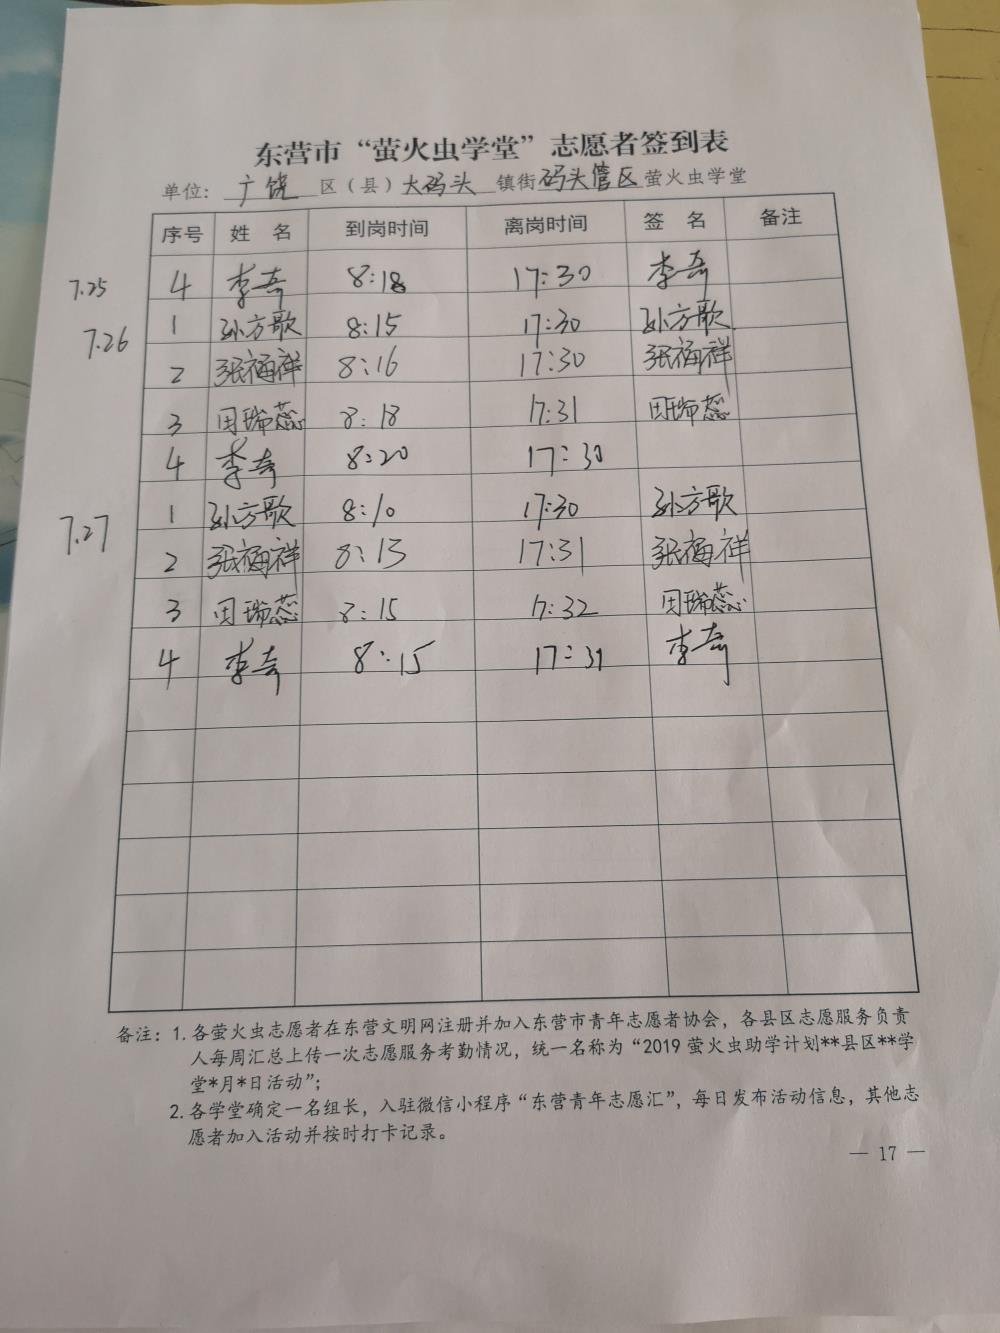 东营市“萤火虫学堂”志愿者签到表
单位：广饶区（县）大码头镇街码头管区萤火虫学堂
序号 姓 名 到岗时间 离岗时间 签 名 备注
7.25 4 李奇 8:18 17:30 李奇
7.26 1 孙方歌 8:15 17:30 孙方歌
2 张梅祥 8:16 17:30 张梅祥
3 田瑞蕊 8:18 17:31 田瑞蕊
4 李奇 8:20 17:30
7.27 1 孙方歌 8:10 17:30 孙方歌
2 张梅祥 8:13 17:31 张梅祥
3 田瑞蕊 8:15 17:32 田瑞蕊
4 李奇 8:15 17:31 李奇
备注：1. 各萤火虫志愿者在东营文明网注册并加入东营市青年志愿者协会，各县区志愿服务负责
人每周汇总上传一次志愿服务考勤情况，统一名称为“2019 萤火虫助学计划**县区**学
堂*月*日活动”；
2. 各学堂确定一名组长，入驻微信小程序“东营青年志愿汇”，每日发布活动信息，其他志
愿者加入活动并按时打卡记录。
— 17 —